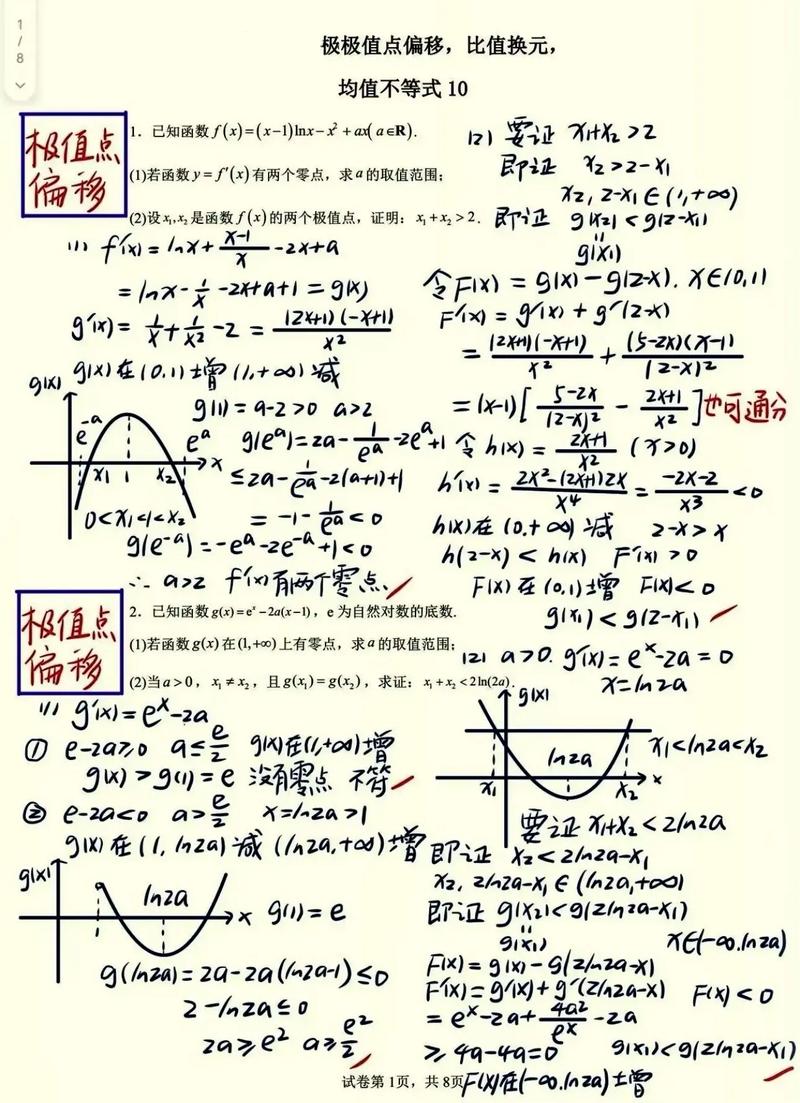 1
/
8
极极值点偏移，比值换元，
均值不等式 10
极值点
偏移
1. 已知函数 f(x)=(x−1)lnx−x²+ax(a∈R).
(1)若函数 y=f′(x) 有两个零点，求 a 的取值范围；
(2)设 x₁,x₂ 是函数 f(x) 的两个极值点，证明：x₁+x₂>2.
(1) f′(x)=lnx+(x-1)/x-2x+a
=lnx-1/x-2x+a+1=g(x)
g′(x)=1/x+1/x²-2=(2x+1)(-x+1)/x²
g(x)在(0,1)增(1,+∞)减
g(x)
g(1)=a-2>0 a>2
e^-a
e^a
x₁ 1 x₂ x
g(e^a)=2a-1/e^a-2e^a+1
≤2a-1/e^a-2(a+1)+1
0<x₁<1<x₂
=-1-1/e^a<0
g(e^-a)=-e^a-2e^-a+1<0
∴ a>2 f′(x)有两个零点.
(2) 要证 x₁+x₂>2
即证 x₂>2-x₁
x₂,2-x₁∈(1,+∞)
即证 g(x₂)<g(2-x₁)
=
g(x₁)
令F(x)=g(x)-g(2-x). x∈(0,1)
F′(x)=g′(x)+g′(2-x)
=(2x+1)(-x+1)/x²+(5-2x)(x-1)/(2-x)²
=(x-1)[(5-2x)/(2-x)²-(2x+1)/x²]也可通分
令 h(x)=(2x+1)/x² (x>0)
h′(x)=(2x²-(2x+1)2x)/x⁴=(-2x-2)/x³<0
h(x)在(0,+∞)减 2-x>x
h(2-x)<h(x) F′(x)>0
F(x)在(0,1)增 F(x)<0
g(x₁)<g(2-x₁)
极值点
偏移
2. 已知函数 g(x)=eˣ−2a(x−1)，e 为自然对数的底数.
(1)若函数 g(x) 在 (1,+∞) 上有零点，求 a 的取值范围；
(2)当 a>0，x₁≠x₂，且 g(x₁)=g(x₂)，求证：x₁+x₂<2ln(2a).
(1) g′(x)=eˣ-2a
① e-2a≥0 a≤e/2 g(x)在(1,+∞)增
g(x)>g(1)=e 没有零点 不符
② e-2a<0 a>e/2 x=ln2a>1
g(x)在(1,ln2a)减(ln2a,+∞)增
g(x)
ln2a
x g(1)=e
g(ln2a)=2a-2a(ln2a-1)≤0
2-ln2a≤0
2a≥e² a≥e²/2
(2) a>0. g′(x)=eˣ-2a=0
x=ln2a
g(x)
ln2a
x₁<ln2a<x₂
x₁ x₂ x
要证x₁+x₂<2ln2a
即证 x₂<2ln2a-x₁
x₂,2ln2a-x₁∈(ln2a,+∞)
即证 g(x₂)<g(2ln2a-x₁)
=
g(x₁) x∈(-∞.ln2a)
F(x)=g(x)-g(2ln2a-x)
F′(x)=g′(x)+g′(2ln2a-x) F(x)<0
=eˣ-2a+4a²/eˣ-2a
≥4a-4a=0 g(x₁)<g(2ln2a-x₁)
F(x)在(-∞.ln2a)增
试卷第 1页，共 8页